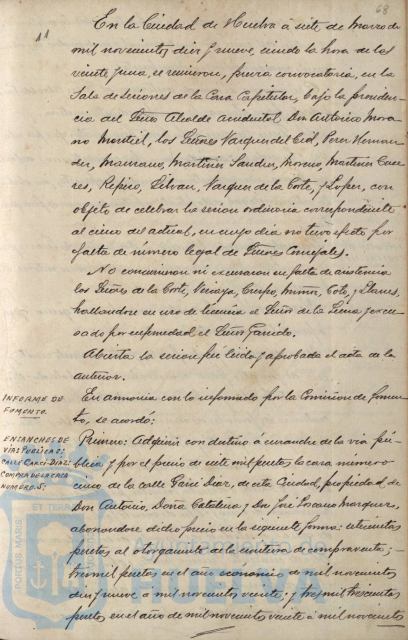 68
11
En la Ciudad de Huelva á siete de marzo de
mil novecientos diez y nueve, siendo la hora de las
veinte y una, se reunieron, previa convocatoria, en la
Sala de sesiones de la Casa Capitular, bajo la presiden-
cia del Señor Alcalde accidental Don Antonio Mora-
no Montiel, los Señores Vazquez del Cid, Perez Hernan-
dez, Manzano, Martinez Sanchez, Moreno, Martinez Cace-
res, Repiso, Silvan, Vazquez de la Corte, y Lopez, con
objeto de celebrar la sesion ordinaria correspondiente
al cinco del actual, en cuyo dia no tuvo efecto por
falta de número legal de Señores Concejales.
No concurrieron ni excusaron su falta de asistencia
los Señores de la Corte, Vizcaya, Crespo, Muñoz, Toto, y Llanes,
hallandose en uso de licencia el Señor de la Lima y excu-
sado por enfermedad el Señor Garrido.
Abierta la sesion fué leida y aprobada el acta de la
anterior.
INFORME DE
FOMENTO.
En armonia con lo informado por la Comision de Fomen-
to, se acordó:
ENSANCHES DE
VIAS PUBLICAS:
CALLE GARCI-DIAZ:
COMPRA DE LA CASA
NÚMERO 5:
Primero: Adquirir con destino á ensanche de la via pú-
blica y por el precio de siete mil pesetas la casa número
cinco de la calle Garci Diaz, de esta Ciudad, propiedad de
Don Antonio, Doña Catalina y Don José Toscano Marquez,
abonandose dicho precio en la siguiente forma: setecientas
pesetas al otorgamiento de la escritura de compraventa;
tres mil pesetas en el año económico de mil novecientos
diez y nueve á mil novecientos veinte; y tres mil trescientas
pesetas en el año de mil novecientos veinte á mil novecientos
PORTUS MARIS ET TERRAE